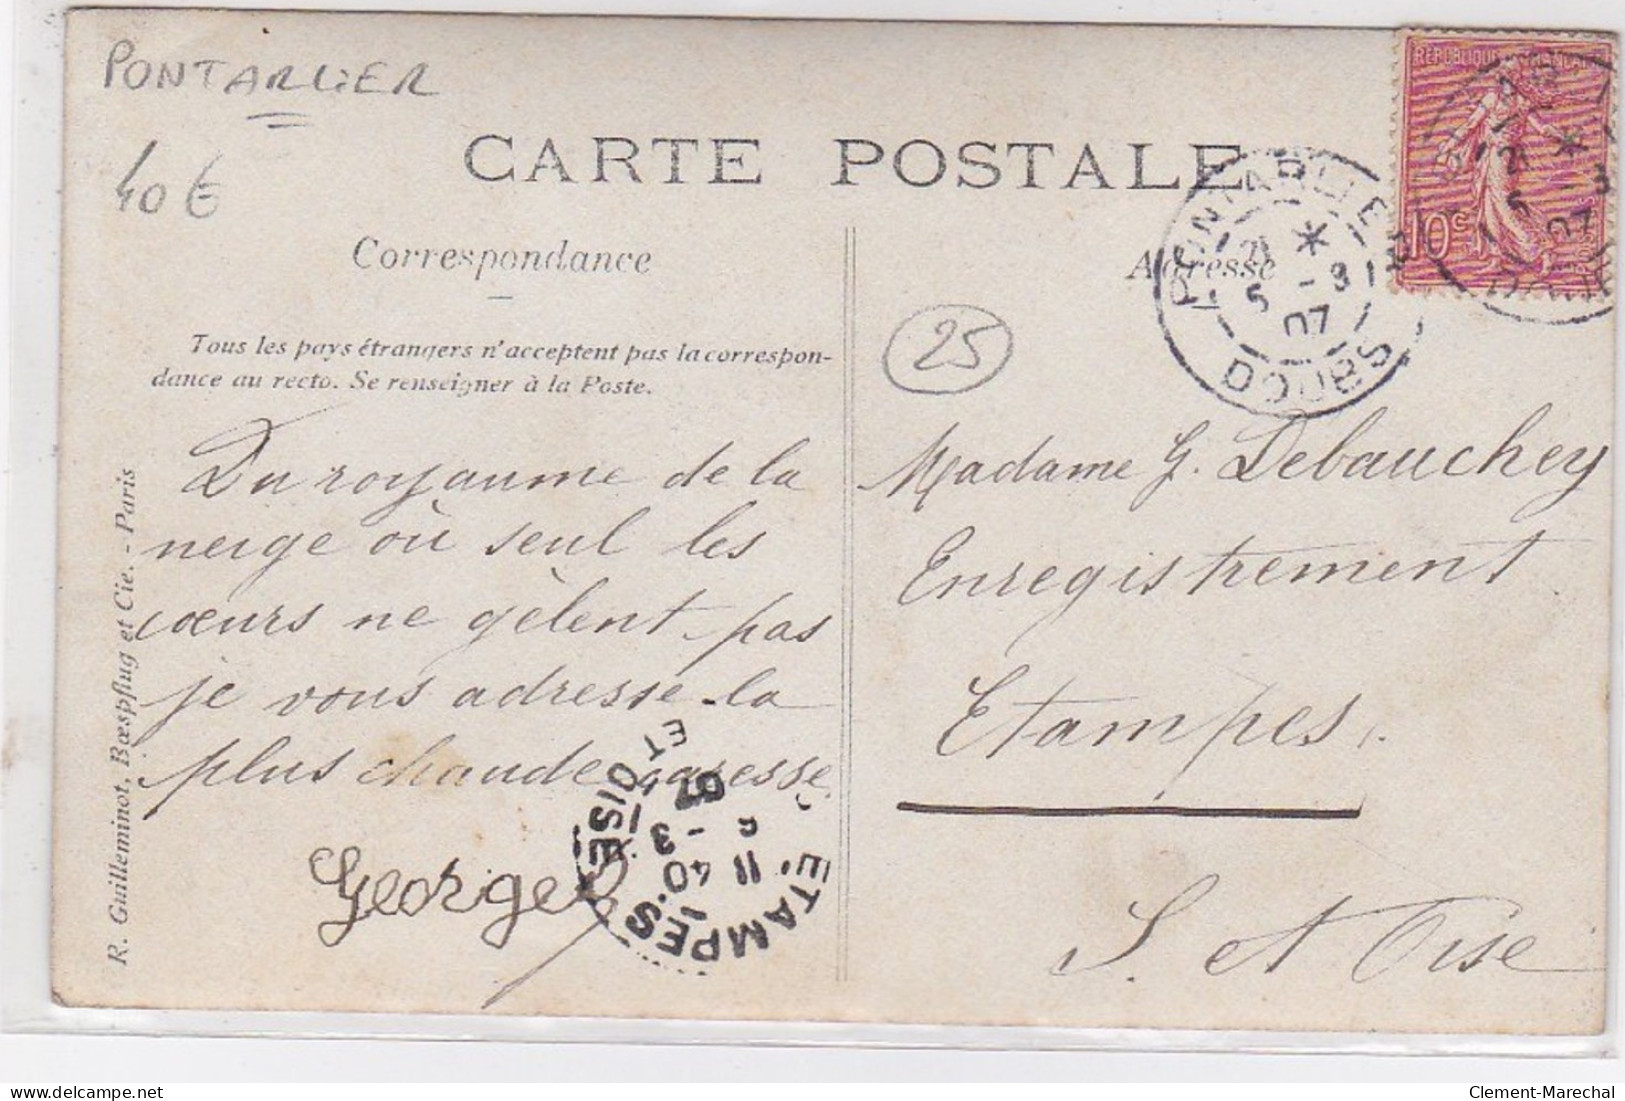 PONTARLIER
40 €
CARTE POSTALE
Correspondance
Adresse
Tous les pays étrangers n'acceptent pas la correspon-
dance au recto. Se renseigner à la Poste.
RÉPUBLIQUE FRANÇAISE
10c
PONTARLIER
21 *
5 - 3
07
DOUBS
25
Du royaume de la
neige où seul les
cœurs ne gèlent pas
je vous adresse la
plus chaude caresse
Georges
Madame G. Debauchey
Enregistrement
Etampes.
S. et Oise
ÉTAMPES
S. ET OISE
11 40
- 3
07
R. Guilleminot, Bœspflug et Cie. - Paris
Clement-Marechal